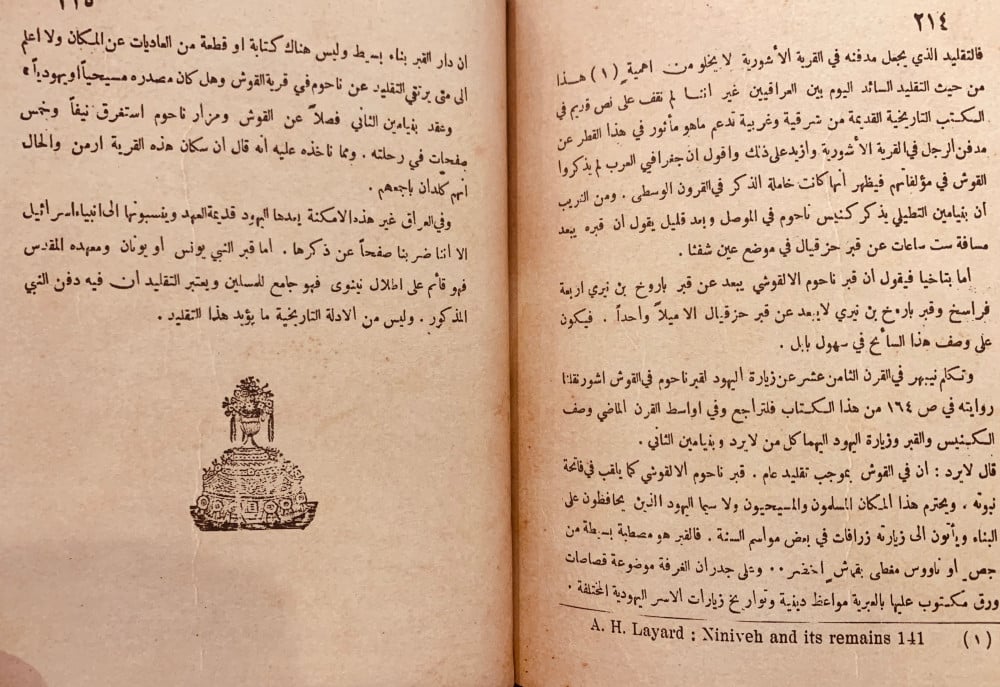 ٢١٤
فالتقليد الذي يجعل مدفنه في القرية الأشورية لا يخلو من اهمية (١) هذا
من حيث التقليد السائد اليوم بين العراقيين غير اننا لم نقف على نص قديم في
المكتب التاريخية القديمة من شرقية وغربية تدعم ماهو مأثور في هذا القطر عن
مدفن الرجل في القرية الأشورية وأزيد على ذلك واقول ان جغرافي العرب لم يذكروا
القوش في مؤلفاتهم فيظهر أنها كانت خاملة الذكر في القرون الوسطى . ومن الغريب
أن بنيامين التطيلي يذكر كنيس ناحوم في الموصل وبعد قليل يقول أن قبره يبعد
مسافة ست ساعات عن قبر حزقيال في موضع عين شفثا .
أما بتاخيا فيقول أن قبر ناحوم الالقوشي يبعد عن قبر باروخ بن نيري اربعة
فراسخ وقبر باروخ بن نيري لا يبعد عن قبر حزقيال الا ميلاً واحداً . فيكون
على وصف هذا السائح في سهول بابل .
وتكلم نيبهر في القرن الثامن عشر عن زيارة اليهود لقبر ناحوم في القوش اشور نقلنا
روايته في ص ١٦٤ من هذا الكتاب فلتراجع وفي اواسط القرن الماضي وصف
الكنيس والقبر وزيارة اليهود اليهما كل من لايرد وبنيامين الثاني .
قال لايرد : أن في القوش بموجب تقليد عام . قبر ناحوم الالقوشي كما يلقب في فاتحة
نبوته . ويحترم هذا المكان المسلمون والمسيحيون ولا سيما اليهود الذين يحافظون على
البناء ويأتون الى زيارته زرافات في بعض مواسم السنة . فالقبر هو مصطبة بسيطة من
جص او ناووس مغطى بقماش أخضر .. وعلى جدران الغرفة موضوعة قصاصات
ورق مكتوب عليها بالعبرية مواعظ دينية وتواريخ زيارات الاسر اليهودية المختلفة .
(١) A. H. Layard : Niniveh and its remains 141
٢١٥
ان دار القبر بناء بسيط وليس هناك كتابة او قطعة من العاديات عن المكان ولا اعلم
الى متى يرتقي التقليد عن ناحوم في قرية القوش وهل كان مصدره مسيحياً أو يهودياً »
وعقد بنيامين الثاني فصلاً عن القوش ومزار ناحوم استغرق نيفاً وخمس
صفحات في رحلته . ومما ناخذه عليه أنه قال ان سكان هذه القرية ارمن والحال
أنهم كلدان باجمعهم .
وفي العراق غير هذه الامكنة يعدها اليهود قديمة العهد وينسبونها الى انبياء اسرائيل
الا أننا ضربنا صفحاً عن ذكرها . أما قبر النبي يونس أو يونان ومعهده المقدس
فهو قائم على اطلال نينوى فهو جامع للمسلمين ويعتبر التقليد أن فيه دفن النبي
المذكور . وليس من الادلة التاريخية ما يؤيد هذا التقليد .